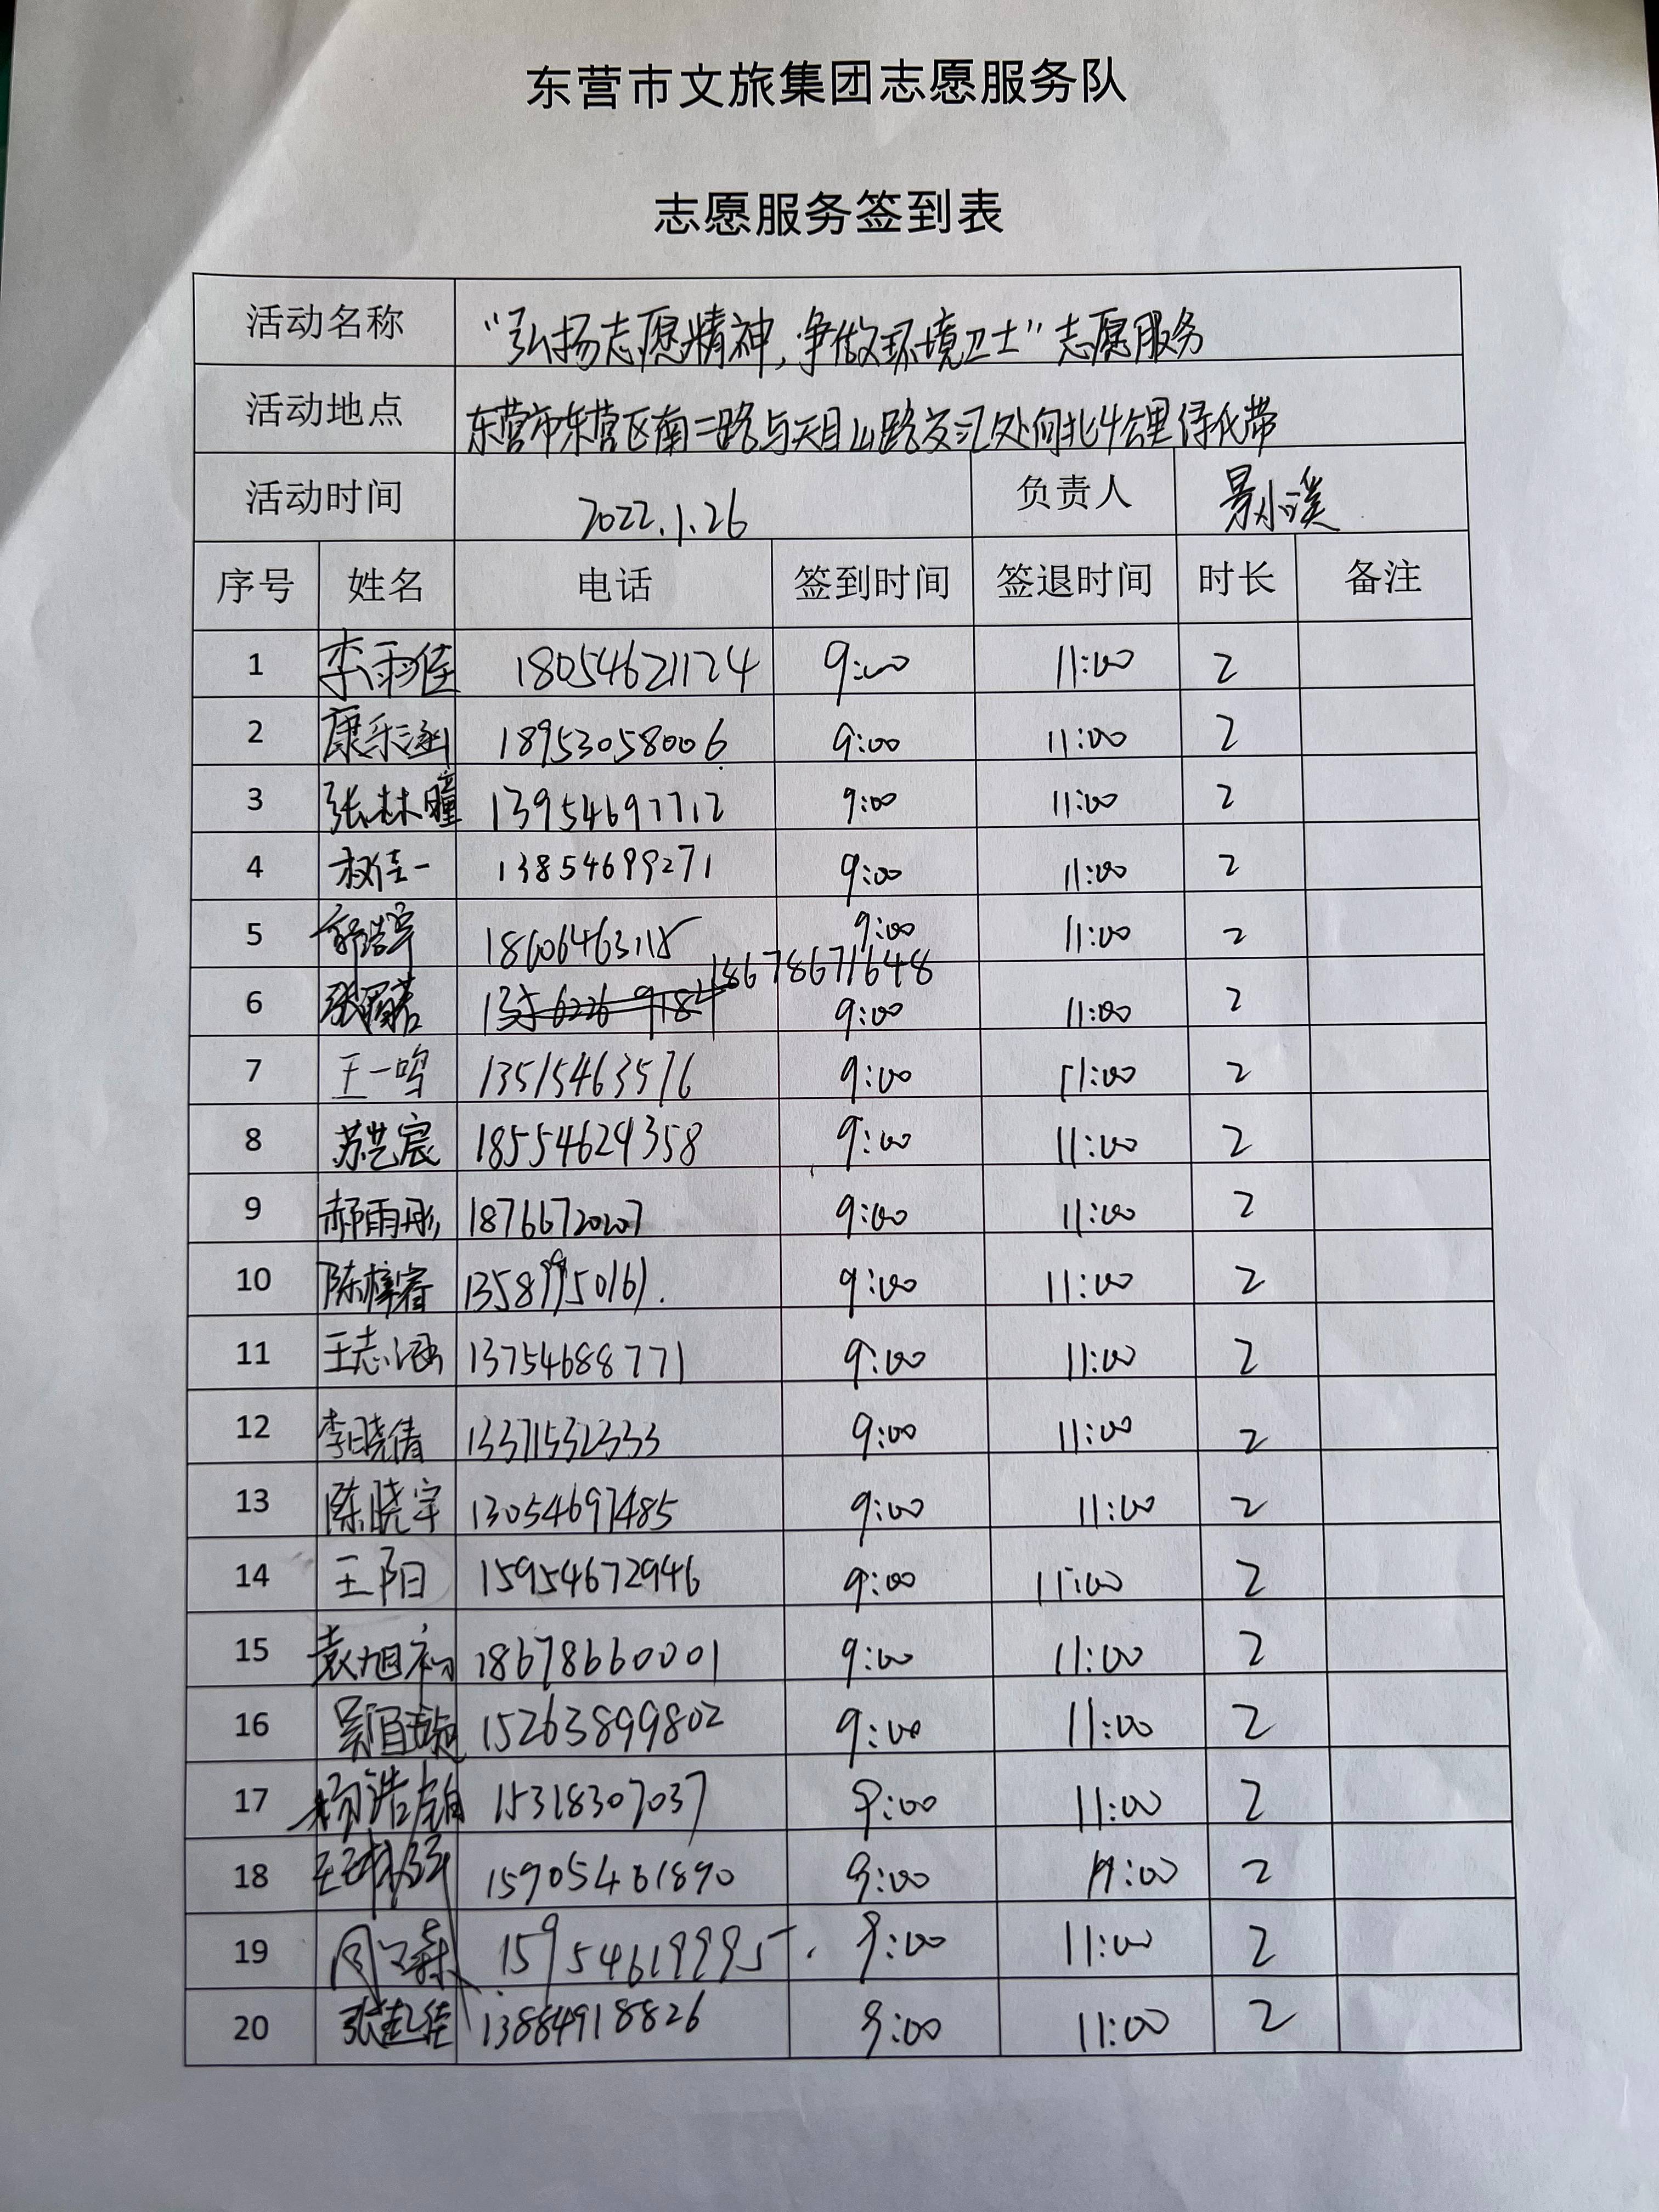 东营市文旅集团志愿服务队
志愿服务签到表
活动名称 “弘扬志愿精神，争做环境卫士”志愿服务
活动地点 东营市东营区南二路与天目山路交汇处向北4公里绿化带
活动时间 2022.1.26 负责人 景小溪
序号 姓名 电话 签到时间 签退时间 时长 备注
1 李雨佳 18054621124 9:00 11:00 2
2 康乐涵 18953058006 9:00 11:00 2
3 张林瞳 13954697712 9:00 11:00 2
4 佳一 13854699271 9:00 11:00 2
5 18606463115 9:00 11:00 2
6 张 18678671648 9:00 11:00 2
7 王一鸣 13515463576 9:00 11:00 2
8 苏艺宸 18554624358 9:00 11:00 2
9 郝雨彤 18766720207 9:00 11:00 2
10 陈梓睿 13589950161. 9:00 11:00 2
11 王志涵 13754688771 9:00 11:00 2
12 李晓倩 13371532333 9:00 11:00 2
13 陈晓宇 13054697485 9:00 11:00 2
14 王阳 15954672946 9:00 11:00 2
15 袁旭初 18678660001 9:00 11:00 2
16 吴 15263899802 9:00 11:00 2
17 杨浩 15318307037 9:00 11:00 2
18 王 15905461890 9:00 11:00 2
19 15954619995 9:00 11:00 2
20 张 佳 13884918826 9:00 11:00 2